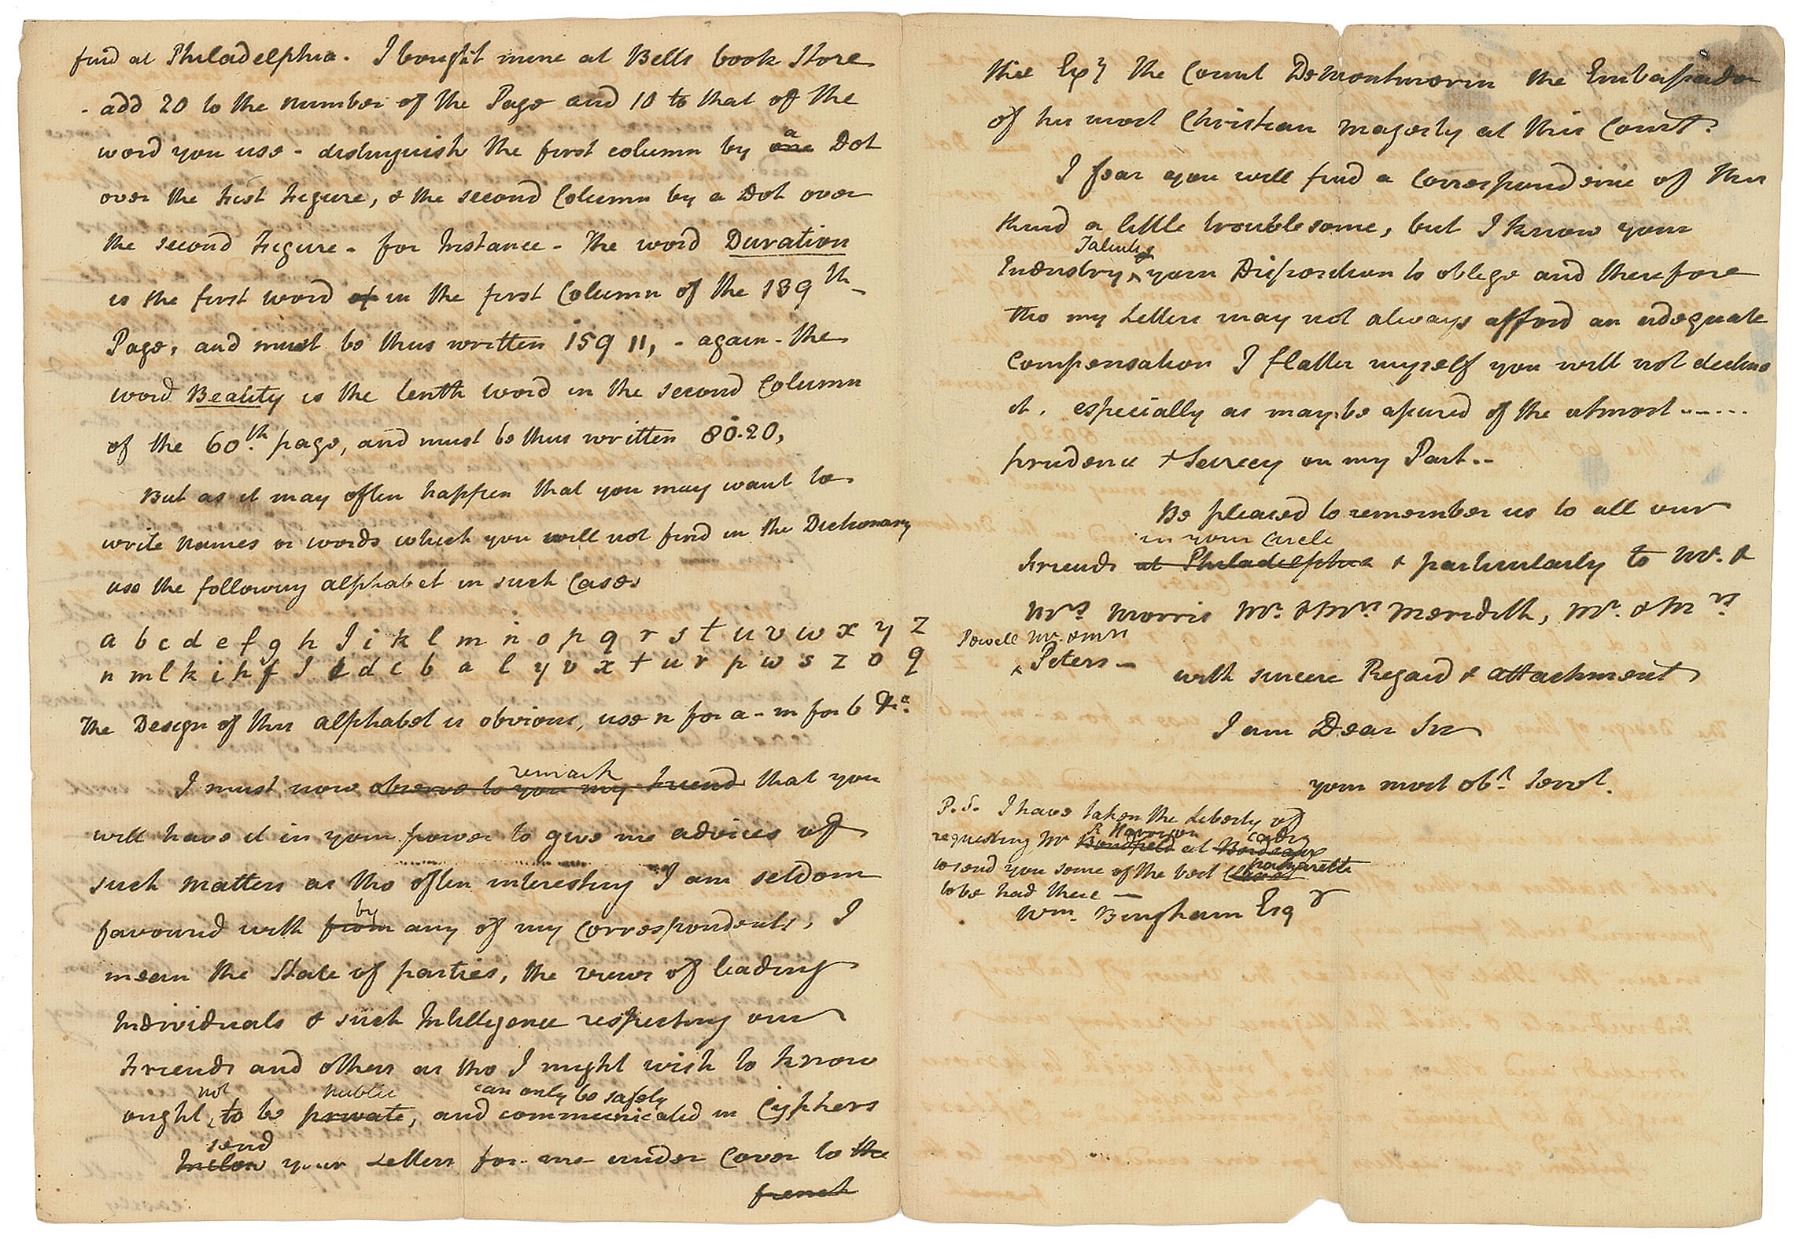 find at Philadelphia. I bought mine at Bells book Store
- add 20 to the number of the Page and 10 to that of the
word you use - distinguish the first column by one a Dot
over the First Figure, & the second Column by a Dot over
the second Figure - for Instance - The word Duration
is the first word of in the first Column of the 139th
Page, and must be thus written 1̇59 11, - again - the
word Beality is the tenth word in the second Column
of the 60th page, and must be thus written 80̇.20,
But as it may often happen that you may want to
write names or words which you will not find in the Dictionary
use the following alphabet in such Cases
a b c d e f g h I i k l m n o p q r s t u v w x y z
n m l k i h f I e d c b a l y v x t u r p w s z o q
The Design of this alphabet is obvious, use n for a - m for b &c.
remark
I must now observe to you my friend that you
will have it in your power to give me advices of
such matters as tho often interesting I am seldom
by
favoured with from any of my Correspondents, I
mean the State of parties, the views of leading
Individuals & such Intelligence respecting our
Friends and others as tho I might wish to know
not public can only be safely
ought, to be private, and communicated in Cyphers
send
Inclose your Letters for me under Cover to the
french
this Exy the Count De Montmorin the Embassador
of his most Christian Majesty at this Court.
I fear you will find a Correspondence of this
kind a little troublesome, but I know your
Talents &
Industry, your Disposition to oblige and therefore
tho my Letters may not always afford an adequate
Compensation I flatter myself you will not decline
it. especially as may be assured of the utmost ......
prudence & Secrecy on my Part..
Be pleased to remember us to all our
in your Circle
Friends at Philadelphia & particularly to Mr. &
Mrs Morris Mr. & Mrs Meredith, Mr. & Mrs
Powell Mr. & Mrs
Peters -
with sincere Regard & attachment
I am Dear Sir
your most obt. Servt.
P.S. I have taken the Liberty of
R Harrison Cadiz
requesting Mr Bondfield at Bordeaux
to send you some of the best Claret
to be had there -
Wm. Bingham Esqr